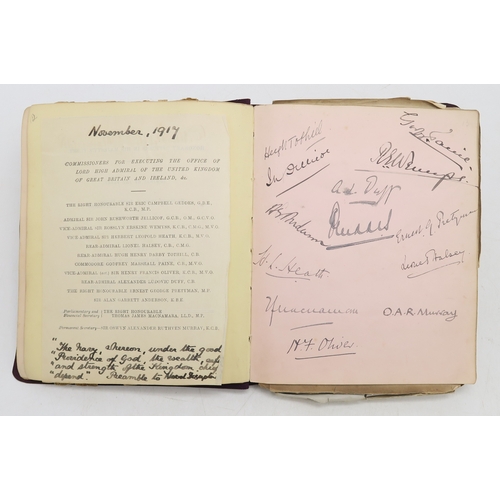 November, 1917
COMMISSIONERS FOR EXECUTING THE OFFICE OF
LORD HIGH ADMIRAL OF THE UNITED KINGDOM
OF GREAT BRITAIN AND IRELAND, &c.
THE RIGHT HONOURABLE SIR ERIC CAMPBELL GEDDES, G.B.E.,
K.C.B., M.P.
ADMIRAL SIR JOHN RUSHWORTH JELLICOE, G.C.B., O.M., G.C.V.O.
VICE-ADMIRAL SIR ROSSLYN ERSKINE WEMYSS, K.C.B., C.M.G., M.V.O.
VICE-ADMIRAL SIR HERBERT LEOPOLD HEATH, K.C.B., M.V.O.
REAR-ADMIRAL LIONEL HALSEY, C.B., C.M.G.
REAR-ADMIRAL HUGH HENRY DARBY TOTHILL, C.B.
COMMODORE GODFREY MARSHALL PAINE, C.B., M.V.O.
VICE-ADMIRAL SIR HENRY FRANCIS OLIVER, K.C.B., M.V.O.
REAR-ADMIRAL ALEXANDER LUDOVIC DUFF, C.B.
THE RIGHT HONOURABLE ERNEST GEORGE PRETYMAN, M.P.
SIR ALAN GARRETT ANDERSON, K.B.E.
Parliamentary and THE RIGHT HONOURABLE
Financial Secretary THOMAS JAMES MACNAMARA, LL.D., M.P.
Permanent Secretary SIR OSWYN ALEXANDER RUTHVEN MURRAY, K.C.B.
"The Navy whereon, under the good
"Providence of God, the wealth,
"and strength of the Kingdom
"depend". Preamble to
Hugh Tothill
Godfrey Paine
A.L. Duff
Ernest G Pretyman
Lionel Halsey
H. L. Heath
O.A.R. Murray
H.F. Oliver